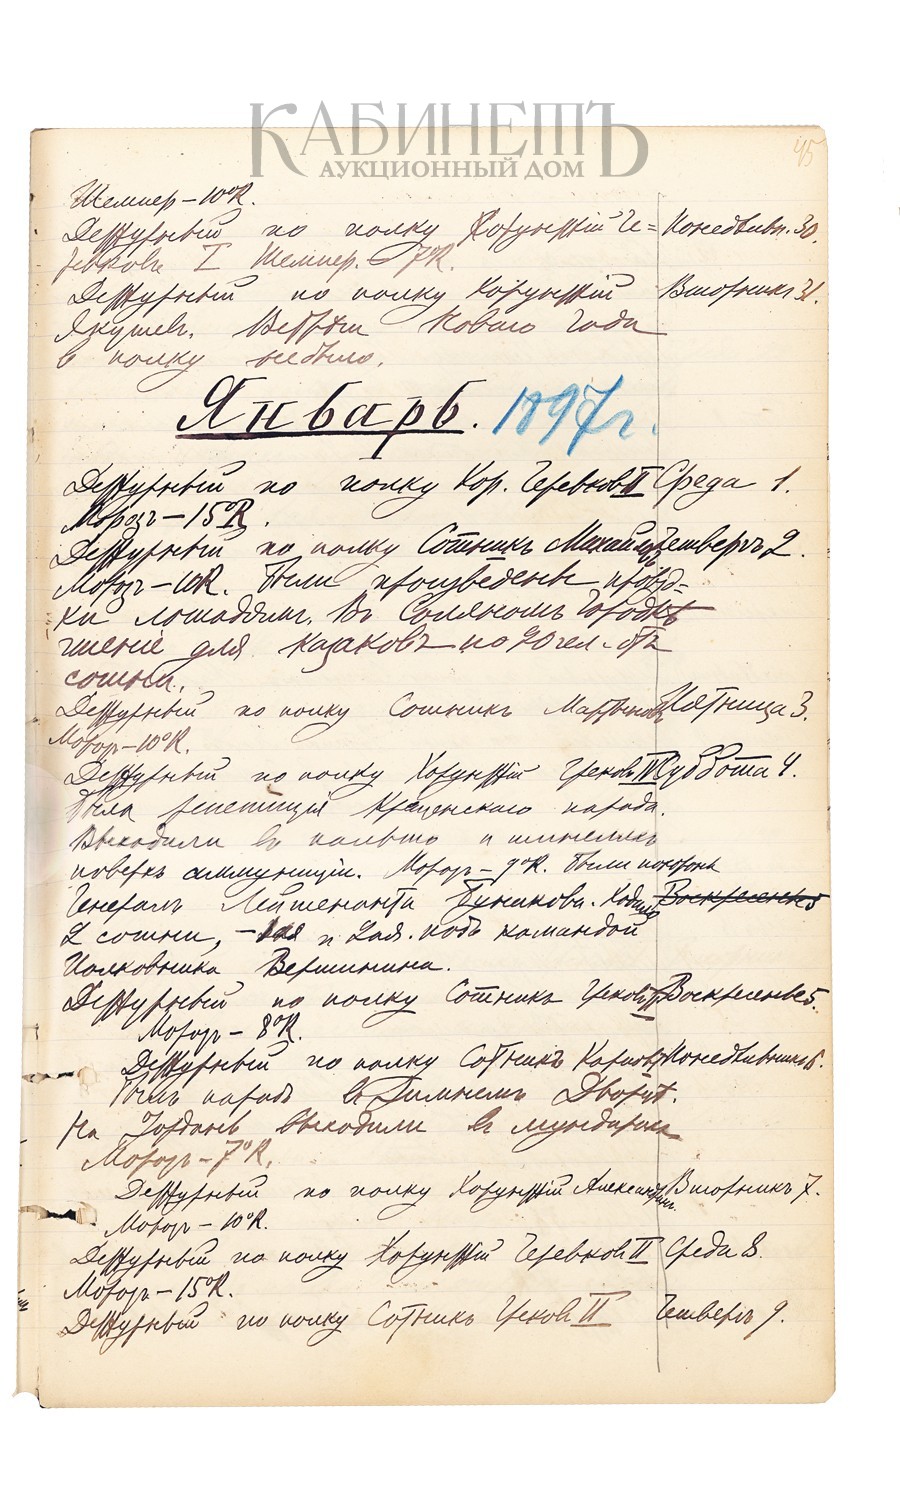 КАБИНЕТЪ
АУКЦИОННЫЙ ДОМ
45
Темпер – 10°R.
Дежурный по полку Хорунжій Че= Понедѣльн. 30.
ревковъ I Темпер. 7°R.
Дежурный по полку Хорунжій Вторникъ 31.
Якушевъ. Встрѣчи Новаго Года
въ полку не было.
Январь. 1897 г.
Дежурный по полку Хор. Черевковъ II Среда 1.
Морозъ – 15°R.
Дежурный по полку Сотникъ Михайловъ Четвергъ 2.
Морозъ – 10°R. Были произведены провод=
ки лошадямъ. Въ Соляномъ Городкѣ
чтеніе для казаковъ по 20 чел. отъ
сотни.
Дежурный по полку Сотникъ Мартыновъ Пятница 3.
Морозъ – 10°R.
Дежурный по полку Хорунжій Грековъ IV Суббота 4.
Была репетиція Крещенскаго парада.
Выходили въ пальто и шинеляхъ
поверхъ аммуниціи. Морозъ – 9°R. Были похороны
Генералъ Лейтенанта Бунакова. Ходили Воскресенье 5
2 сотни, – 1ая и 2ая. подъ командой
Полковника Вершинина.
Дежурный по полку Сотникъ Грековъ II Воскресенье 5.
Морозъ – 8°R.
Дежурный по полку Сотникъ Карповъ Понедѣльникъ 6.
Былъ парадъ въ Зимнемъ Дворцѣ.
На Іордань выходили въ мундирахъ
Морозъ – 7°R.
Дежурный по полку Хорунжій Александринъ. Вторникъ 7.
Морозъ – 10°R.
Дежурный по полку Хорунжій Черевковъ II Среда 8.
Морозъ – 15°R.
Дежурный по полку Сотникъ Грековъ II Четвергъ 9.